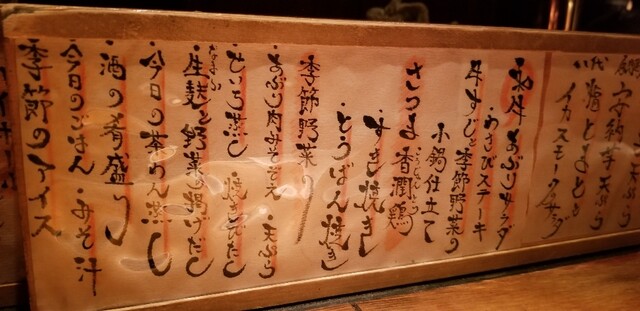 安納芋天ぷら
脂とまと
イカスモークサラダ
和牛あぶりサラダ
わさびステーキ
牛すじと季節野菜の
小鍋仕立て
さつま香潤鶏
すき焼き
とうばん焼き
季節野菜
あぶり肉みそそえ 天ぷら
せいろ蒸し 焼きびたし
なまふ
生麩と野菜の揚げだし
今日の茶わん蒸し
酒の肴盛り
今日のごはん みそ汁
季節のアイス